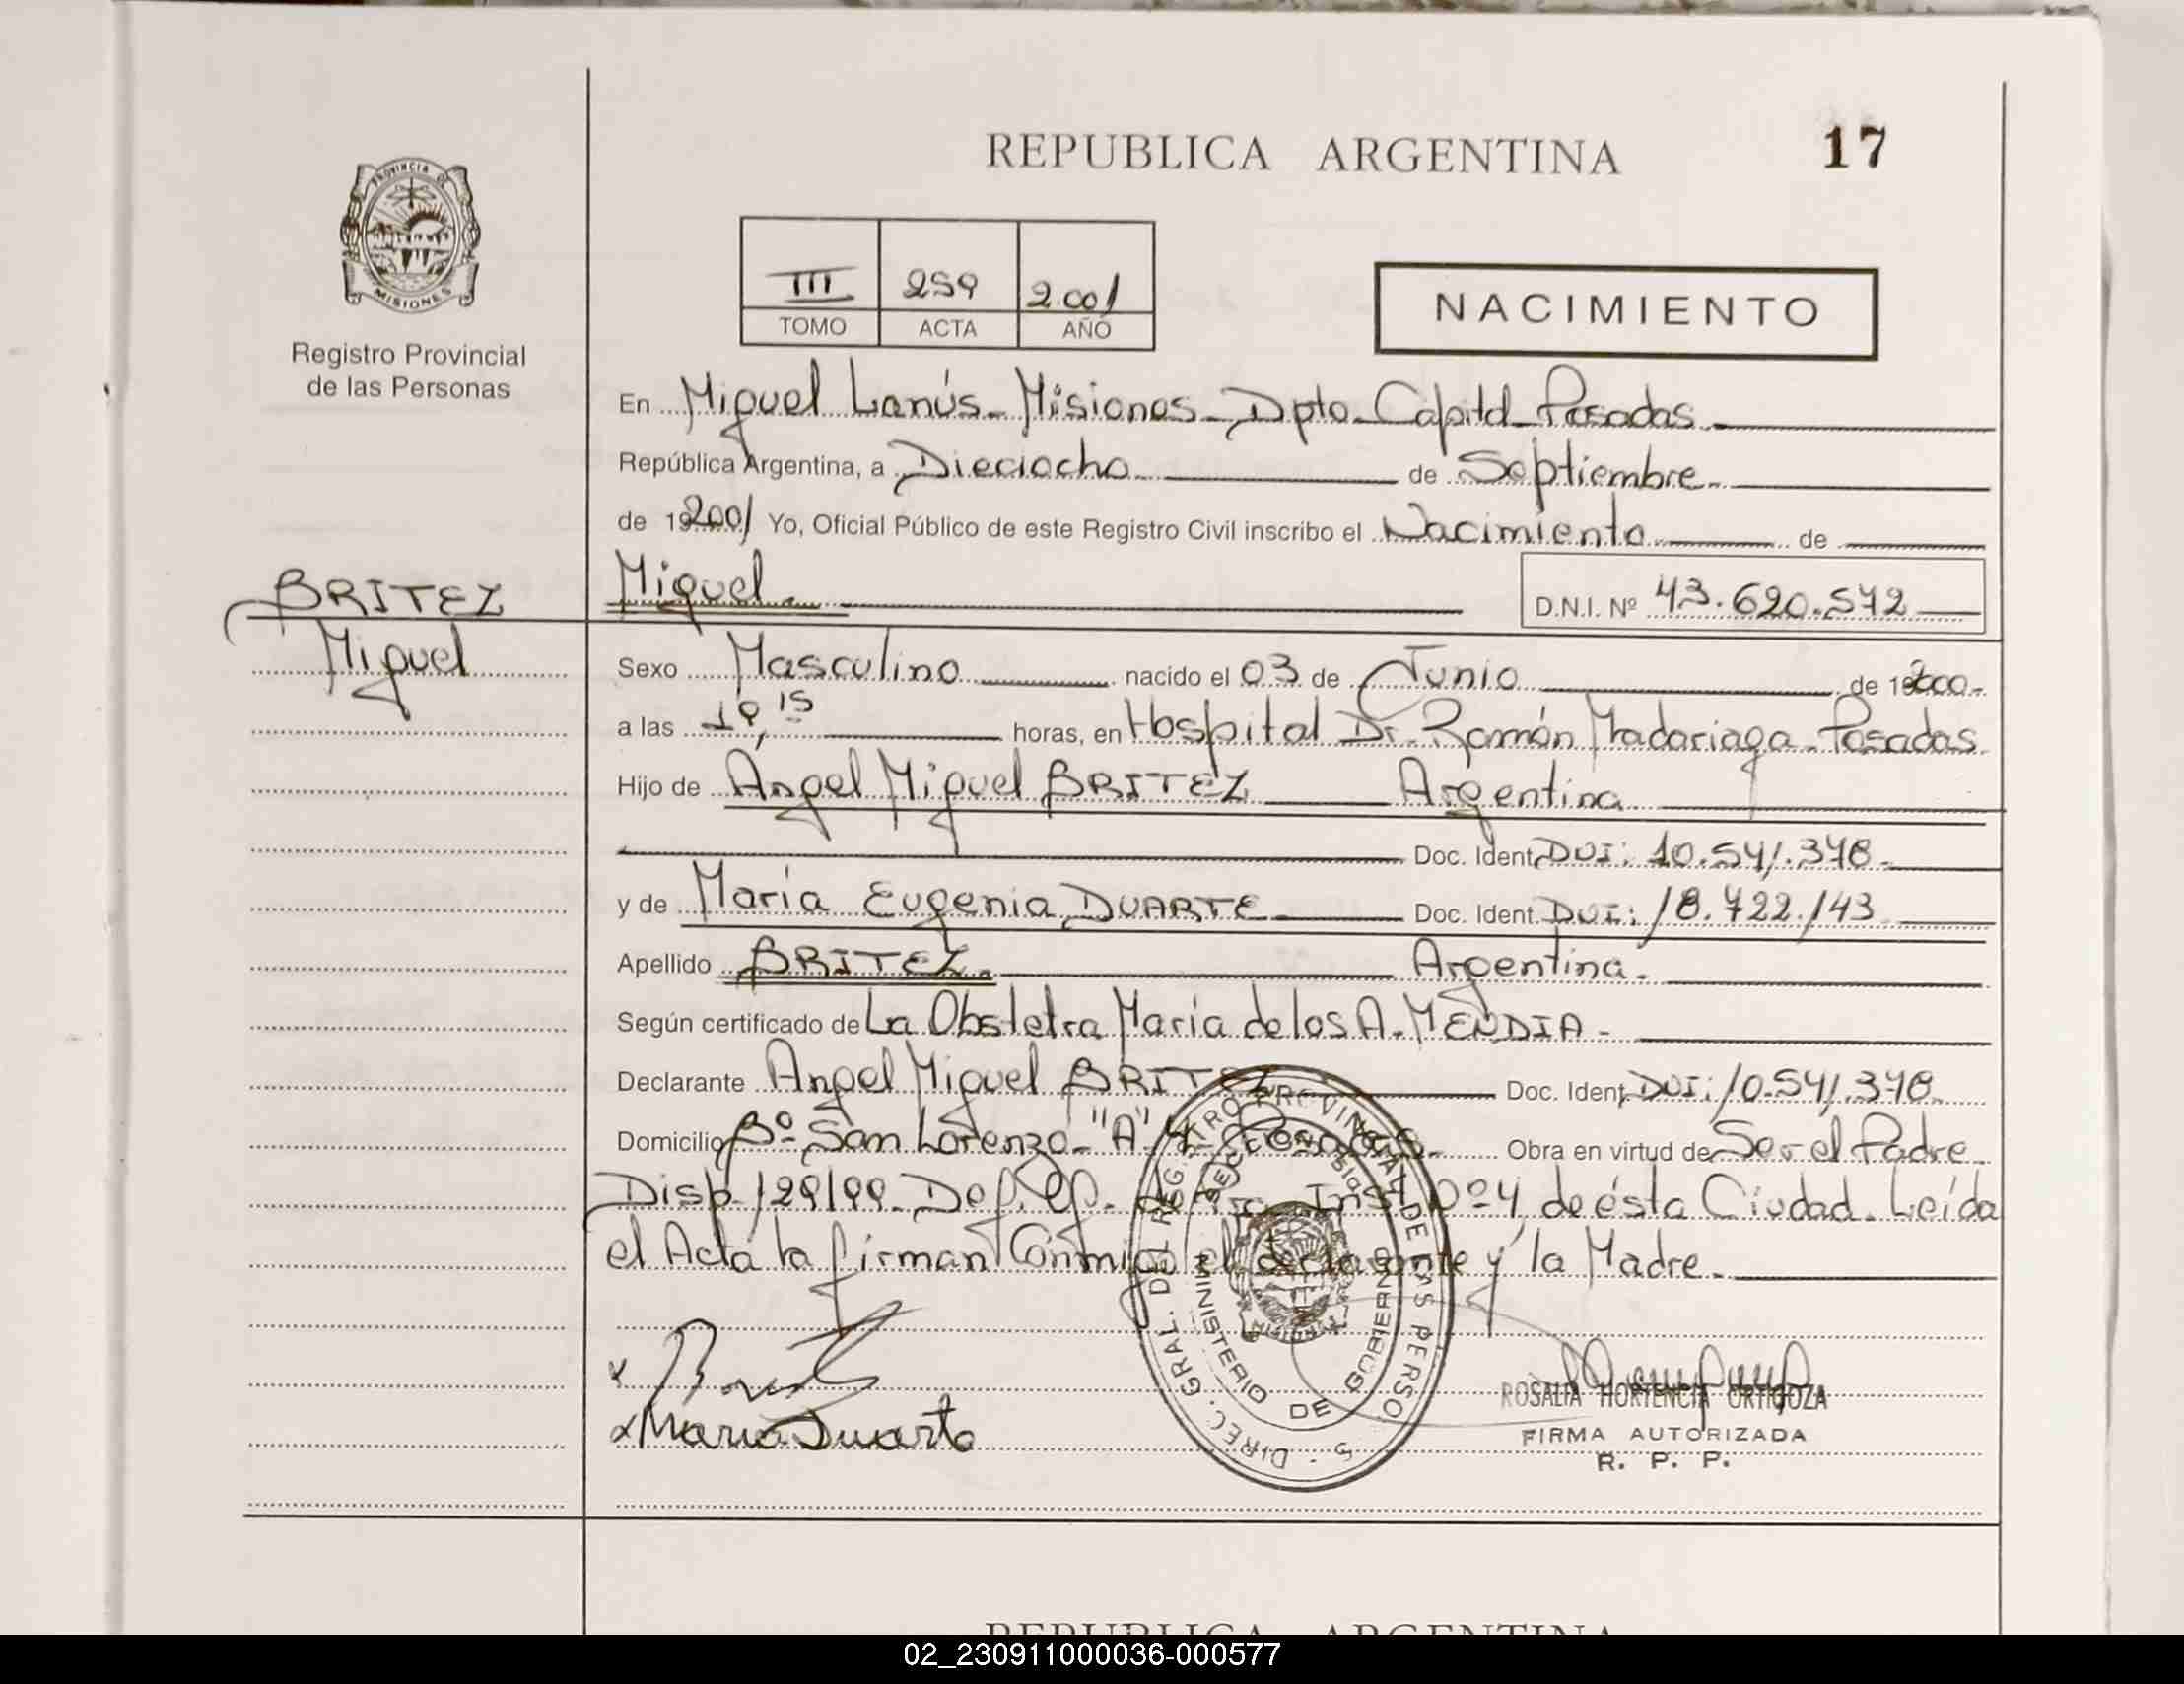 REPUBLICA ARGENTINA
17
PROVINCIA DE
MISIONES
Registro Provincial
de las Personas
III 259 2.001
TOMO ACTA AÑO
NACIMIENTO
En Miguel Lanús - Misiones - Dpto. Capital - Posadas.
República Argentina, a Dieciocho de Septiembre
de 192001 Yo, Oficial Público de este Registro Civil inscribo el Nacimiento de
BRITEZ
Miguel
Miguel.
D.N.I. Nº 43.620.572
Sexo Masculino nacido el 03 de Junio de 2000.-
a las 19,15 horas, en Hospital Dr. Ramón Madariaga - Posadas.
Hijo de Angel Miguel BRITEZ Argentina
Doc. Ident. DNI: 10.541.378.-
y de María Eugenia DUARTE Doc. Ident. DNI: 18.722.143
Apellido BRITEZ. Argentina.
Según certificado de La Obstetra María de los A. MENDIA -
Declarante Angel Miguel BRITEZ Doc. Ident. DNI: 10.541.378
Domicilio Bº San Lorenzo - "A" 4 Posadas. Obra en virtud de Ser el Padre
Disp. 129/99 - Inst. Nº 4, de ésta Ciudad. Leída
el Acta la firman Conmigo el declarante y la Madre.
DIREC. GRAL. DEL REG. PROVINCIAL DE LAS PERSONAS
MINISTERIO DE GOBIERNO
María Duarte
ROSALIA HORTENCIA ORTIGOZA
FIRMA AUTORIZADA
R. P. P.
REPUBLICA ARGENTINA
02_230911000036-000577